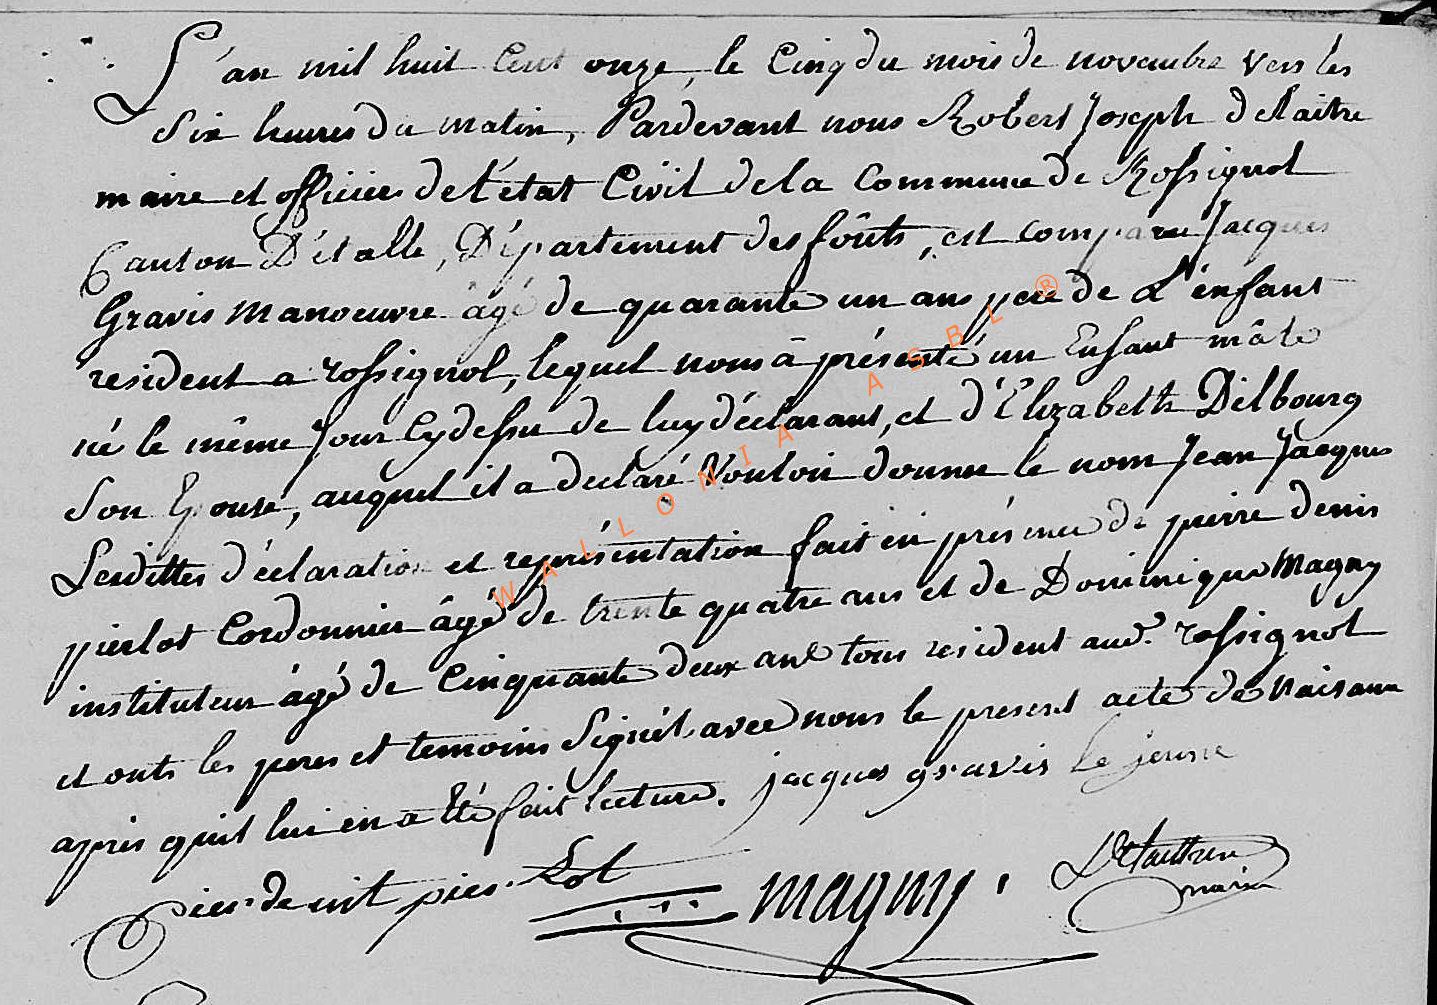 L'an mil huit Cent onze, le Cinq du mois de novembre vers les
Six heures du matin, Pardevant nous Robert Joseph delaitre
maire et officier de l'état Civil de la Commune de Rossignol
Canton D'étalle, Département des forêts, est comparu Jacques
Gravis Manoeuvre âgé de quarante un ans pere de L'enfant
resident a rossignol, lequel nous â présenté un Enfant mâle
né le même Jour Cydessu de luy déclarant, et d'Elizabeth Dilbourg
Son Epouse, auquel il a declaré Vouloir donner le nom Jean Jacques
Lesdittes déclaration et représentation fait en présence de pierre denis
pierlot Cordonnier âgé de trente quatre ans et de Dominique Magny
instituteur âgé de Cinquante deux ans tous resident aud. rossignol
et onts les peres et temoins Signés avec nous le present acte de naisance
apris quil lui en a été fait lecture. jacques gravis le jeune
pier. denit pier. Lot magny. Delaittre
maire
WALLONIA ASBL ®